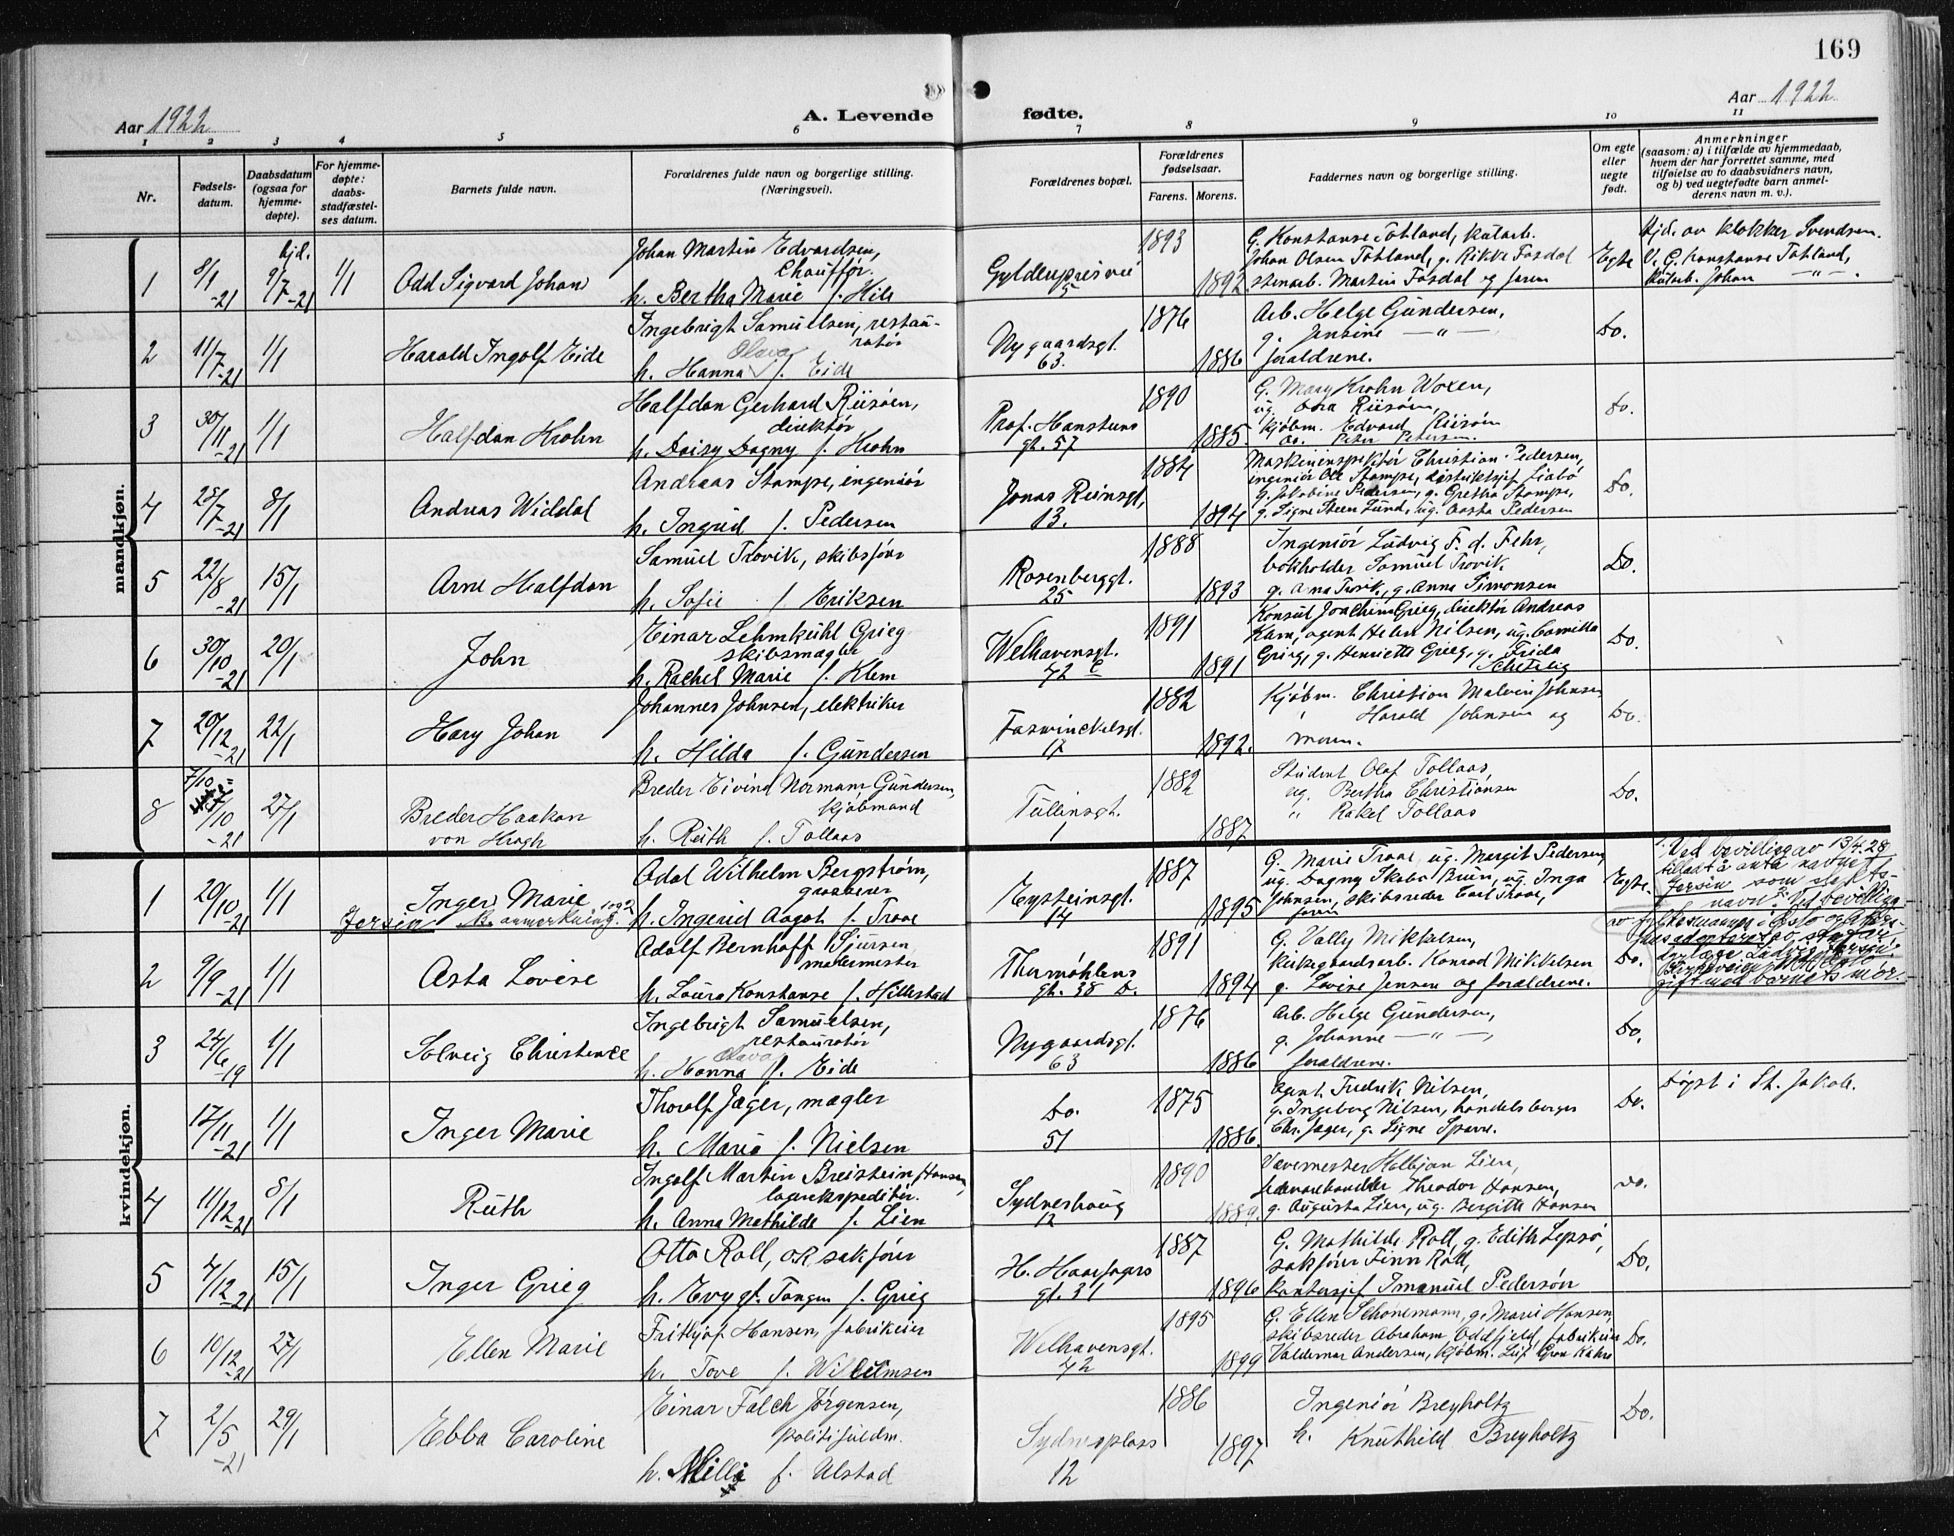 169
Aar 1922
A. Levende
fødte.
Aar 1922
1 2 3 4 5 6 7 8 9 10 11
Nr.
Fødsels-
datum.
Daabsdatum
(ogsaa for
hjemme-
døpte).
For hjemme-
døpte:
daabs-
stadfæstel-
ses datum.
Barnets fulde navn.
Forældrenes fulde navn og borgerlige stilling.
(Næringsvei).
Forældrenes bopæl.
Forældrenes
fødselsaar.
Farens. Morens.
Faddernes navn og borgerlige stilling.
Om egte
eller
uegte
født.
Anmerkninger
(saasom: a) i tilfælde av hjemmedaab,
hvem der har forrettet samme, med
tilføielse av to daabsvidners navn,
og b) ved uegtefødte barn anmel-
derens navn m. v.).
mandkjøn.
1 8/1 -21 hjd. 9/7 -21 1/1 Odd Sigvard Johan
Johan Martin Edvardsen,
Chauffør.
h. Bertha Marie f. Hile
Gyldenprisvei
5
1893
1892
G. Konstanse Tøhland, kutarb.
Johan Olsen Tøhland, g. Rikke Fosdal
stenarb. Martin Fosdal og faren
Egte
Hjd. av klokker Svendsen.
V. G. Konstanse Tøhland,
Kutarb. Johan — " — .
2 11/7 -21 1/1 Harald Ingolf Eide
Ingebrigt Samuelsen, restau-
ratør
Olava
h. Hanna f. Eide
Nygaardsgt.
63.
1876
1886
Arb. Helge Gundersen,
g. Jensine — " —
forældrene.
Do.
3 30/11 -21 1/1 Halfdan Krohn
Halfdan Gerhard Riisøen,
direktør
h. Daisy Dagny f. Krohn
Prof. Hansteens
gt. 57
1890
1885.
G. Mary Krohn Woxen,
ug. Ona Riisøen,
kjøbm. Edvard Riisøen
Do. Peter Petersen.
Do.
4 28/7 -21 8/1 Andreas Widdal
Andreas Stampe, ingeniør
h. Ingrid f. Pedersen
Jonas Reinsgt,
13.
1884
1894
Maskininspektør Christian Pedersen,
ingeniør Ole Stampe, distriktssjef Liabø
g. Jakobine Pedersen, g. Grethe Stampe,
g. Signe Steen Lund, ug. Aasta Pedersen
Do.
5 22/8 -21 15/1 Arne Halfdan
Samuel Trovik, skibsfører
h. Sofie f. Eriksen
Rosenberggt.
25
1888
1893
Ingeniør Ludvig F. d. Fehr,
bokholder Samuel Trovik
g. Ana Trovik, g. Anna Simonsen
Do.
6 30/10 -21 20/1 John
Einar Lehmkuhl Grieg
skibsmægler
h. Rachel Marie f. Klem
Welhavensgt.
72 c
1891
1891
Konsul Joachim Grieg, direktør Andreas
Kârn, agent Helen Nilsen, ug. Camilla
Grieg, g. Henriette Grieg, g. Frida
Schetelig
Do.
7 20/12 -21 22/1 Hary Johan
Johannes Johnsen, elektriker
h. Hilda f. Gundersen
Foswinckelsgt.
17
1882
1892.
Kjøbm. Christian Malvin Johnsen
" Harald Johnsen og
moren.
Do.
8 7/10 = 7/10 -21 27/1 Breder Haakon
von Krogh
Breder Eivind Normann Gundersen,
kjøbmand
h. Ruth f. Tollaas
Tullinsgt.
1
1882
1887
Student Olaf Tollaas
ug. Bertha Christiansen
" Rakel Tollaas
Do.
kvindekjøn.
1 20/10 -21 1/1 Inger Marie
Jersin se anmerkning. 1 og 2
Odd Wilhelm Bergstrøm,
grosserer
h. Ingerid Aagot f. Traae
Eysteinsgt.
14
1887
1895
G. Marie Traae, ug. Margit Pedersen,
ug. Dagny Skabo Bruin, ug. Inga
Johnsen, skibsreder Carl Traae,
faren
Egte.
1. Ved bevilling av 13/4.28
tillatt å anta navnet
Jersin som slekts-
navn. 2. Ved bevilling
av fylkesmannen i Oslo og Akers-
hus adoptert av
læge Ludvig Jersin,
gift med barnets mor.
2 9/9 -21 1/1 Asta Lovise
Adolf Bernhoff Sjursen
malermester
h. Laura Konstanse f. Hillestad
Thormøhlens
gt. 38 D.
1891
1894
G. Vally Mikkelsen,
kirkegaardsarb. Konrad Mikkelsen
g. Lovise Jensen og forældrene.
Do.
3 24/6 -19 1/1 Solveig Christence
Ingebrigt Samuelsen,
restauratør
Olava
h. Hanna f. Eide
Nygaardsgt.
63
1876
1886
Arb. Helge Gundersen,
g. Johanne — " — ,
forældrene.
Do.
17/11 -21 1/1 Inger Marie
Thorolf Jæger, mægler
h. Marie f. Nielsen
Do.
51
1875
1886.
Agent Fredrik Nilsen,
g. Ingeborg Nilsen, handelsborger
Chr. Jæger, g. Signe Sparre.
Do.
Døpt i St. Jakob.
4 11/12 -21 8/1 Ruth
Ingolf Martin Breistein Hansen,
lagerekspeditør.
h. Anna Mathilde f. Lien
Sydneshaug
12
1890
1889.
Vævemester Halbjørn Lien,
Theodor Hansen,
g. Augusta Lien, ug. Bergitte Hansen
Do.
5 4/12 -21 15/1 Inger Grieg
Otto Roll, OR sakfører
h. Evy gt. Tangen f. Grieg
H. Haarfagers
gt. 31
1887
1896
G. Mathilde Roll, g. Edith Lepsø,
sakfører Finn Roll,
kontorsjef Imanuel Pedersøn
Do.
6 10/12 -21 27/1 Ellen Marie
Fritljof Hansen, fabrikeier
h. Tove f. Willumsen
Welhavensgt.
72
1895
1899
G. Ellen Schønemann, g. Marie Hansen,
skibsreder Abraham Oddfjeld, fabrikeier
Valdemar Andersen, kjøbm. Leif Gran Kahrs
Do.
7 2/5 -21 29/1 Ebba Caroline
Einar Falch Jørgensen,
politifuldm.
h. Milli f. Ulstad
Sydnesplass
12
1886
1897
Ingeniør Breyholtz
h. Knuthild Breyholtz
Do.